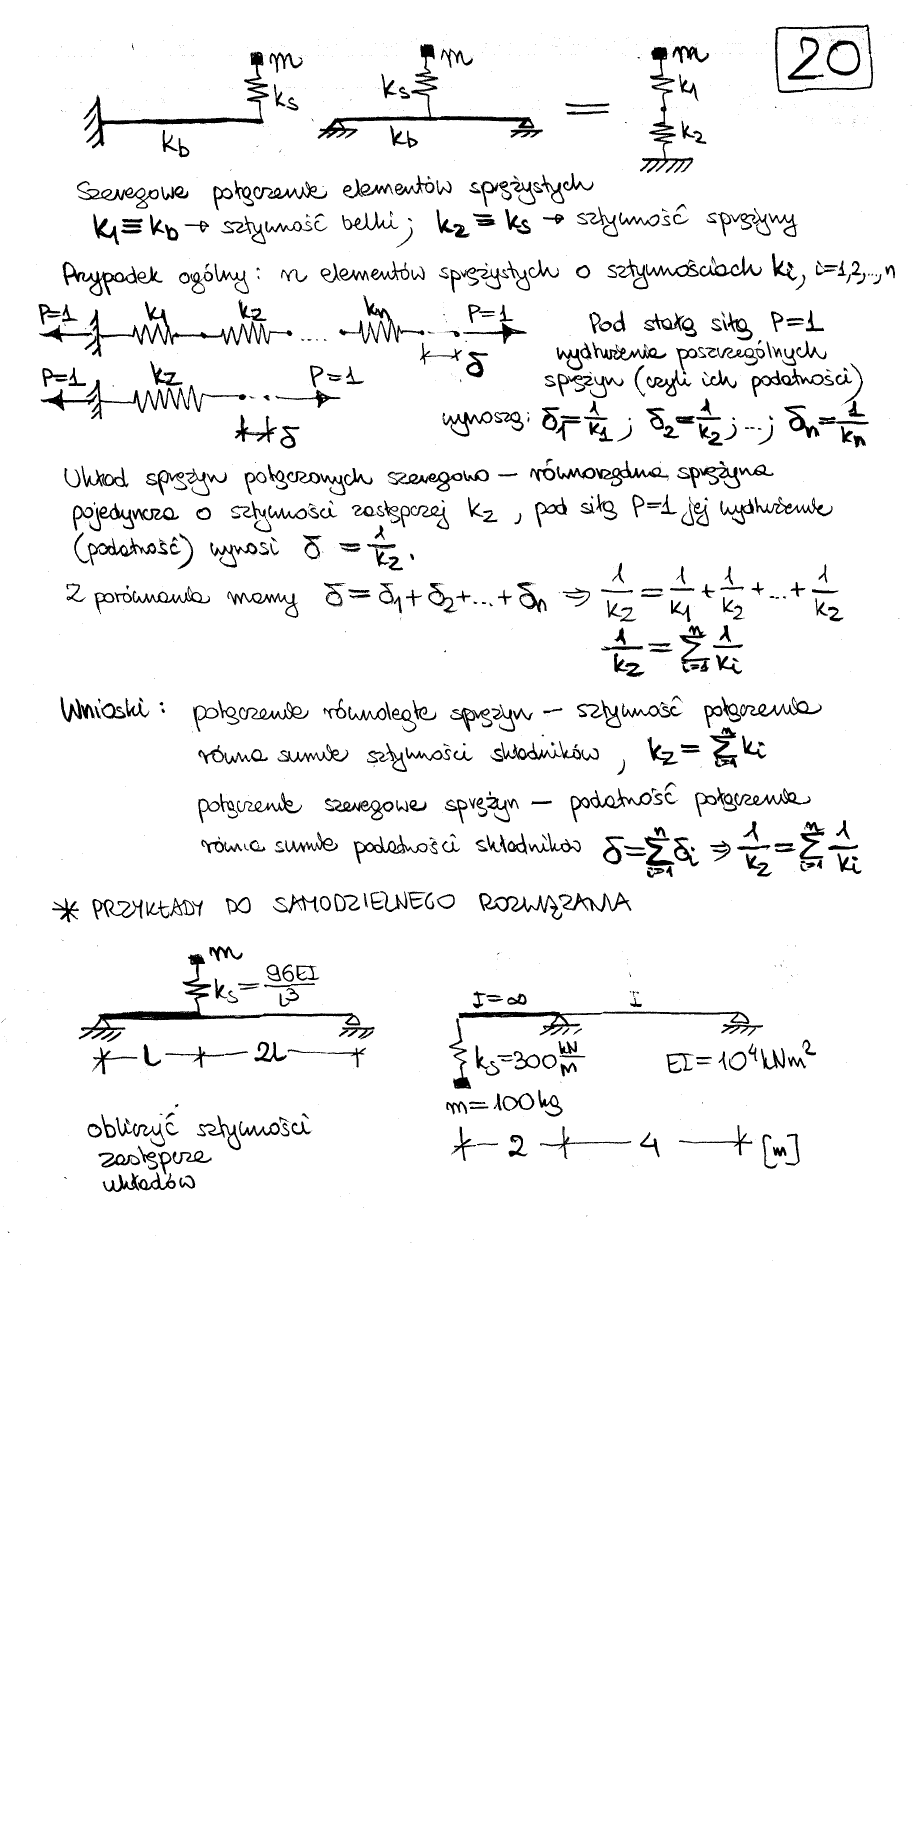 20
m m m
ks ks k1
kb kb = k2
Szeregowe połączenie elementów sprężystych
k1≡kb → sztywność belki; k2≡ks → sztywność sprężyny
Przypadek ogólny: n elementów sprężystych o sztywnościach ki, i=1,2,..,n
P=1 k1 k2 .... kn P=1 δ
Pod stałą siłą P=1
wydłużenia poszczególnych
P=1 kz P=1 δ
sprężyn (czyli ich podatności)
wynoszą: δ1=1/k1; δ2=1/k2; ...; δn=1/kn
Układ sprężyn połączonych szeregowo – równorzędna sprężyna
pojedyncza o sztywności zastępczej kz, pod siłą P=1 jej wydłużenie
(podatność) wynosi δ = 1/kz.
Z porównania mamy δ=δ1+δ2+...+δn ⇒ 1/kz = 1/k1 + 1/k2 + ... + 1/kz
1/kz = Σ_{i=1}^{n} 1/ki
Wnioski: połączenie równoległe sprężyn – sztywność połączenia
równa sumie sztywności składników, kz = Σ_{i=1}^{n} ki
połączenie szeregowe sprężyn – podatność połączenia
równa sumie podatności składników δ=Σ_{i=1}^{n} δi ⇒ 1/kz = Σ_{i=1}^{n} 1/ki
* PRZYKŁADY DO SAMODZIELNEGO ROZWIĄZANIA
m
ks = 96EI/L³
L 2L
obliczyć sztywności
zastępcze
układów
I=∞ I
ks=300 kN/m EI=10⁴kNm²
m=100kg
2 4 [m]